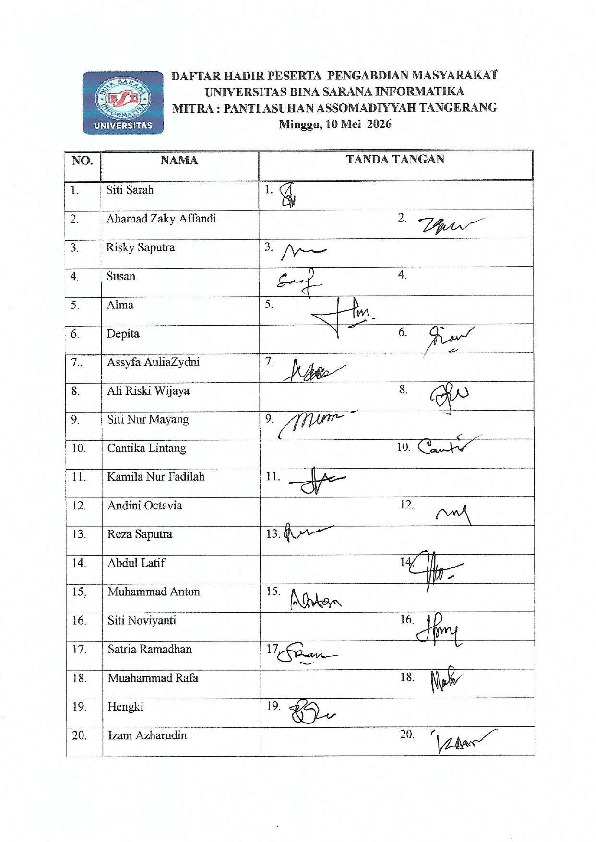 DAFTAR HADIR PESERTA PENGABDIAN MASYARAKAT
UNIVERSITAS BINA SARANA INFORMATIKA
MITRA : PANTI ASUHAN ASSOMADIYYAH TANGERANG
Minggu, 10 Mei 2026
UNIVERSITAS
NO. NAMA TANDA TANGAN
1. Siti Sarah 1.
2. Ahamad Zaky Affandi 2.
3. Risky Saputra 3.
4. Susan 4.
5. Alma 5.
6. Depita 6.
7.. Assyfa AuliaZydni 7
8. Ali Riski Wijaya 8.
9. Siti Nur Mayang 9.
10. Cantika Lintang 10.
11. Kamila Nur Fadilah 11.
12. Andini Octavia 12.
13. Reza Saputra 13.
14. Abdul Latif 14.
15. Muhammad Anton 15.
16. Siti Noviyanti 16.
17. Satria Ramadhan 17.
18. Muahammad Rafa 18.
19. Hengki 19.
20. Izam Azharudin 20.